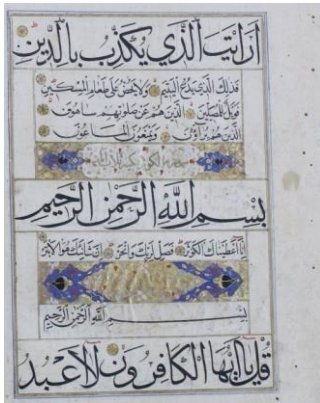 أرأيت الذي يكذب بالدين
فذلك الذي يدع اليتيم ولا يحض على طعام المسكين
فويل للمصلين الذين هم عن صلوتهم ساهون
الذين هم يراؤن ويمنعون الماعون
بسم الله الرحمن الرحيم
إنا أعطيناك الكوثر فصل لربك وانحر إن شانئك هو الأبتر
بسم الله الرحمن الرحيم
قل يا أيها الكافرون لا أعبد